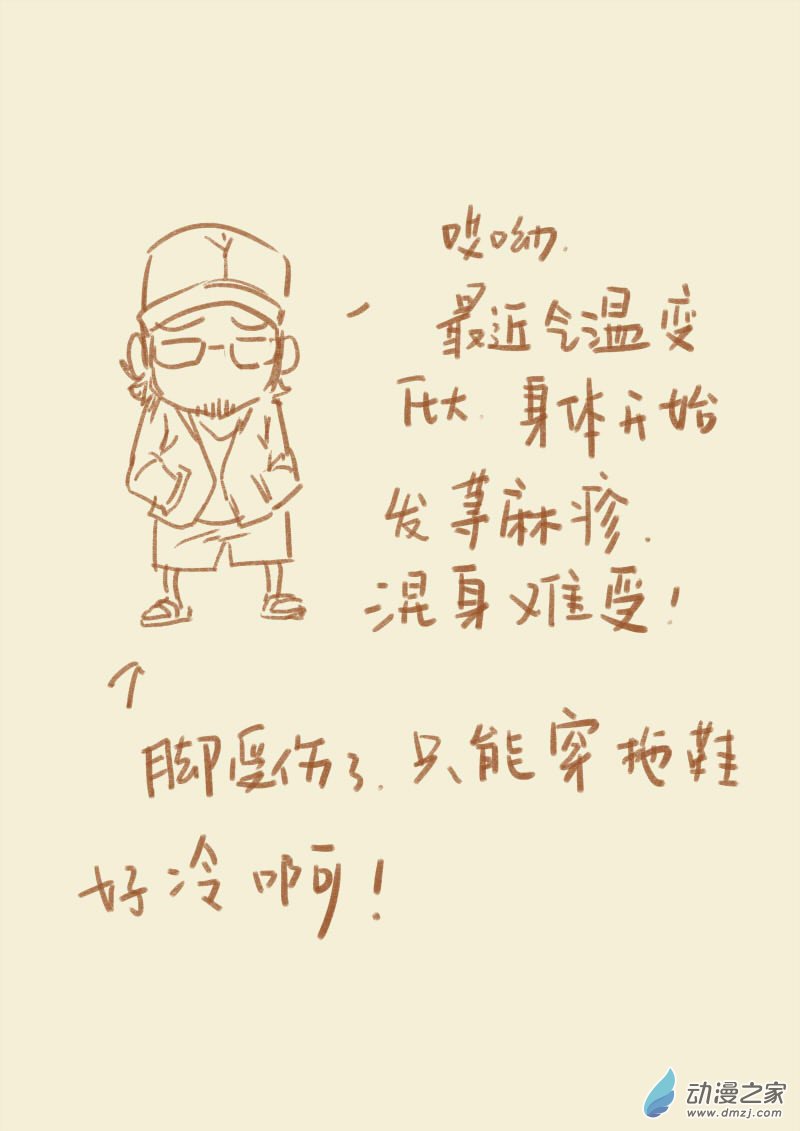 哎呦.
最近气温变
巨大.身体开始
发荨麻疹.
混身难受!
脚受伤了.只能穿拖鞋
好冷啊!
动漫之家
www.dmzj.com